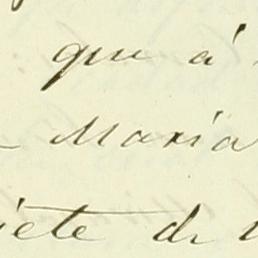 que á
Maria
iete de